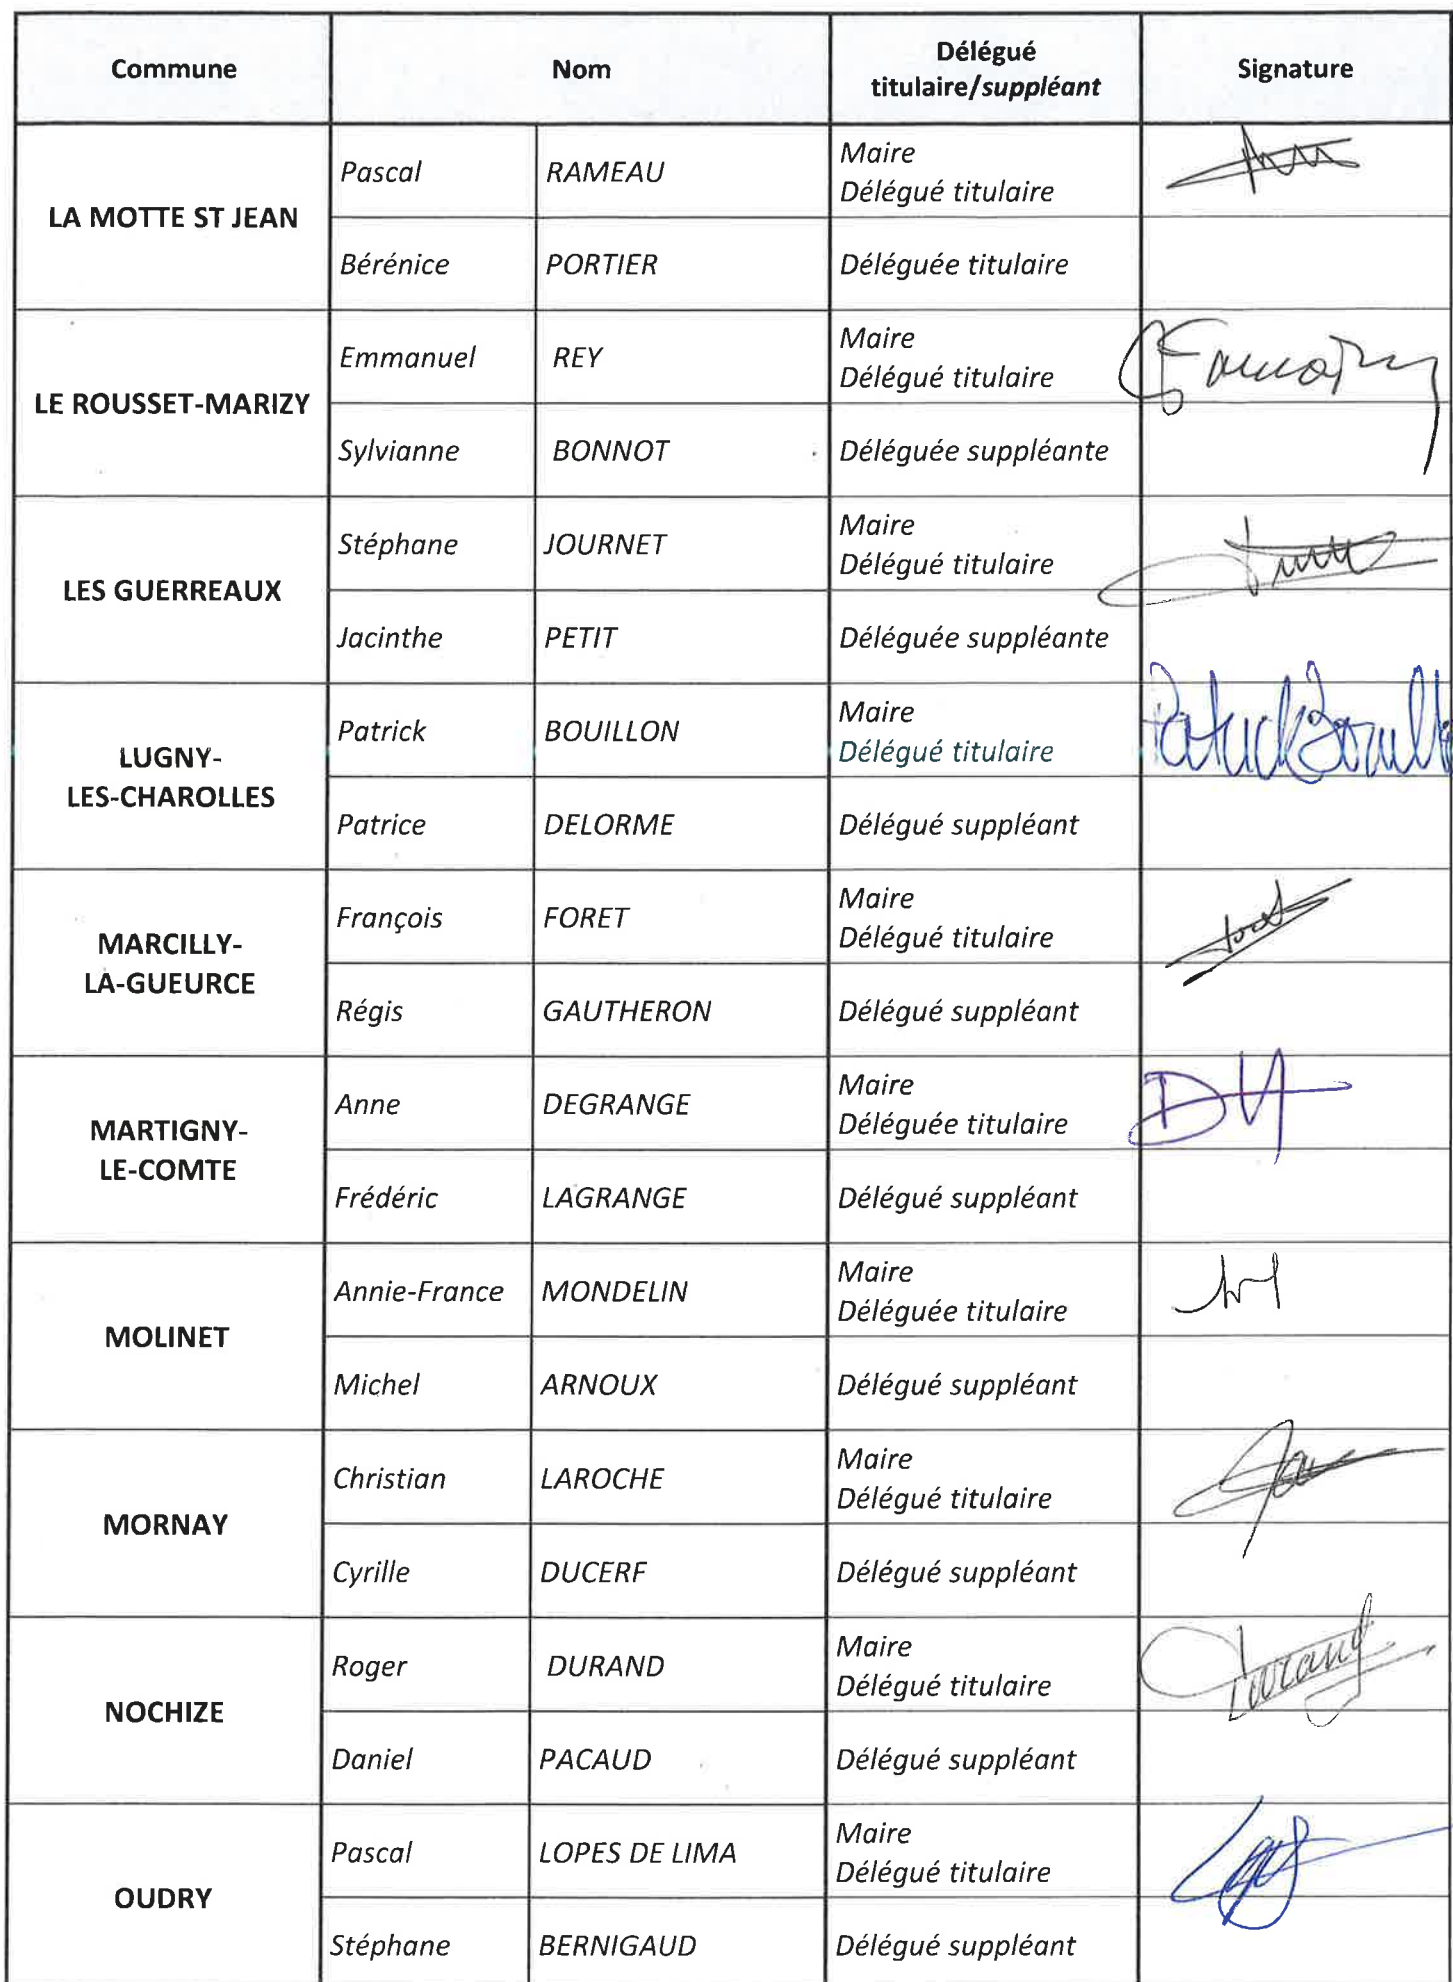 Commune Nom Délégué titulaire/suppléant Signature
LA MOTTE ST JEAN
Pascal RAMEAU Maire
Délégué titulaire
Bérénice PORTIER Déléguée titulaire
LE ROUSSET-MARIZY
Emmanuel REY Maire
Délégué titulaire
Sylvianne BONNOT Déléguée suppléante
LES GUERREAUX
Stéphane JOURNET Maire
Délégué titulaire
Jacinthe PETIT Déléguée suppléante
LUGNY-
LES-CHAROLLES
Patrick BOUILLON Maire
Délégué titulaire
Patrice DELORME Délégué suppléant
MARCILLY-
LA-GUEURCE
François FORET Maire
Délégué titulaire
Régis GAUTHERON Délégué suppléant
MARTIGNY-
LE-COMTE
Anne DEGRANGE Maire
Déléguée titulaire
Frédéric LAGRANGE Délégué suppléant
MOLINET
Annie-France MONDELIN Maire
Déléguée titulaire
Michel ARNOUX Délégué suppléant
MORNAY
Christian LAROCHE Maire
Délégué titulaire
Cyrille DUCERF Délégué suppléant
NOCHIZE
Roger DURAND Maire
Délégué titulaire
Daniel PACAUD Délégué suppléant
OUDRY
Pascal LOPES DE LIMA Maire
Délégué titulaire
Stéphane BERNIGAUD Délégué suppléant